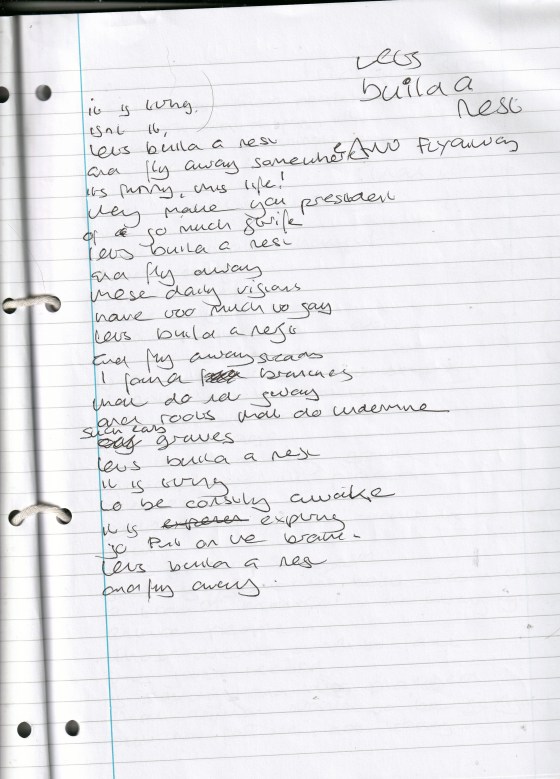 Lets
build a
nest
it is tiring.
isnt it,
lets build a nest
and fly away somewhere AND FLY AWAY
its funny, this life!
they make you president
of so much strife
lets build a nest
and fly away
these daily visions
have too much to say
lets build a nest
and fly away
I found branches
that do not sway
and roots that do undermine
such early graves
lets build a nest
it is tiring
to be awake
it is expiring
so put on the
lets build a nest
and fly away.